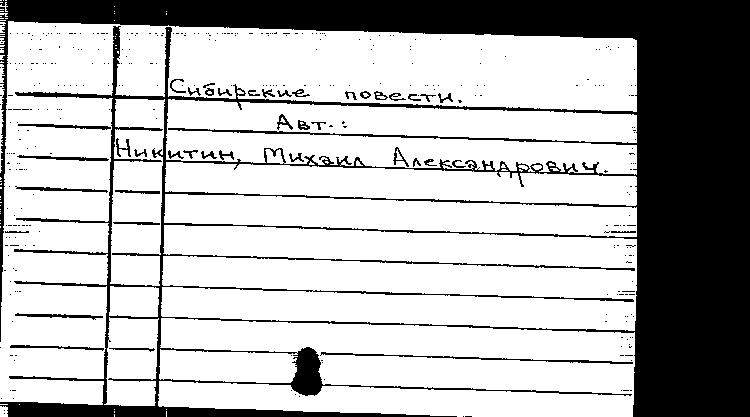 Сибирские повести.
Авт.:
Никитин, Михаил Александрович.